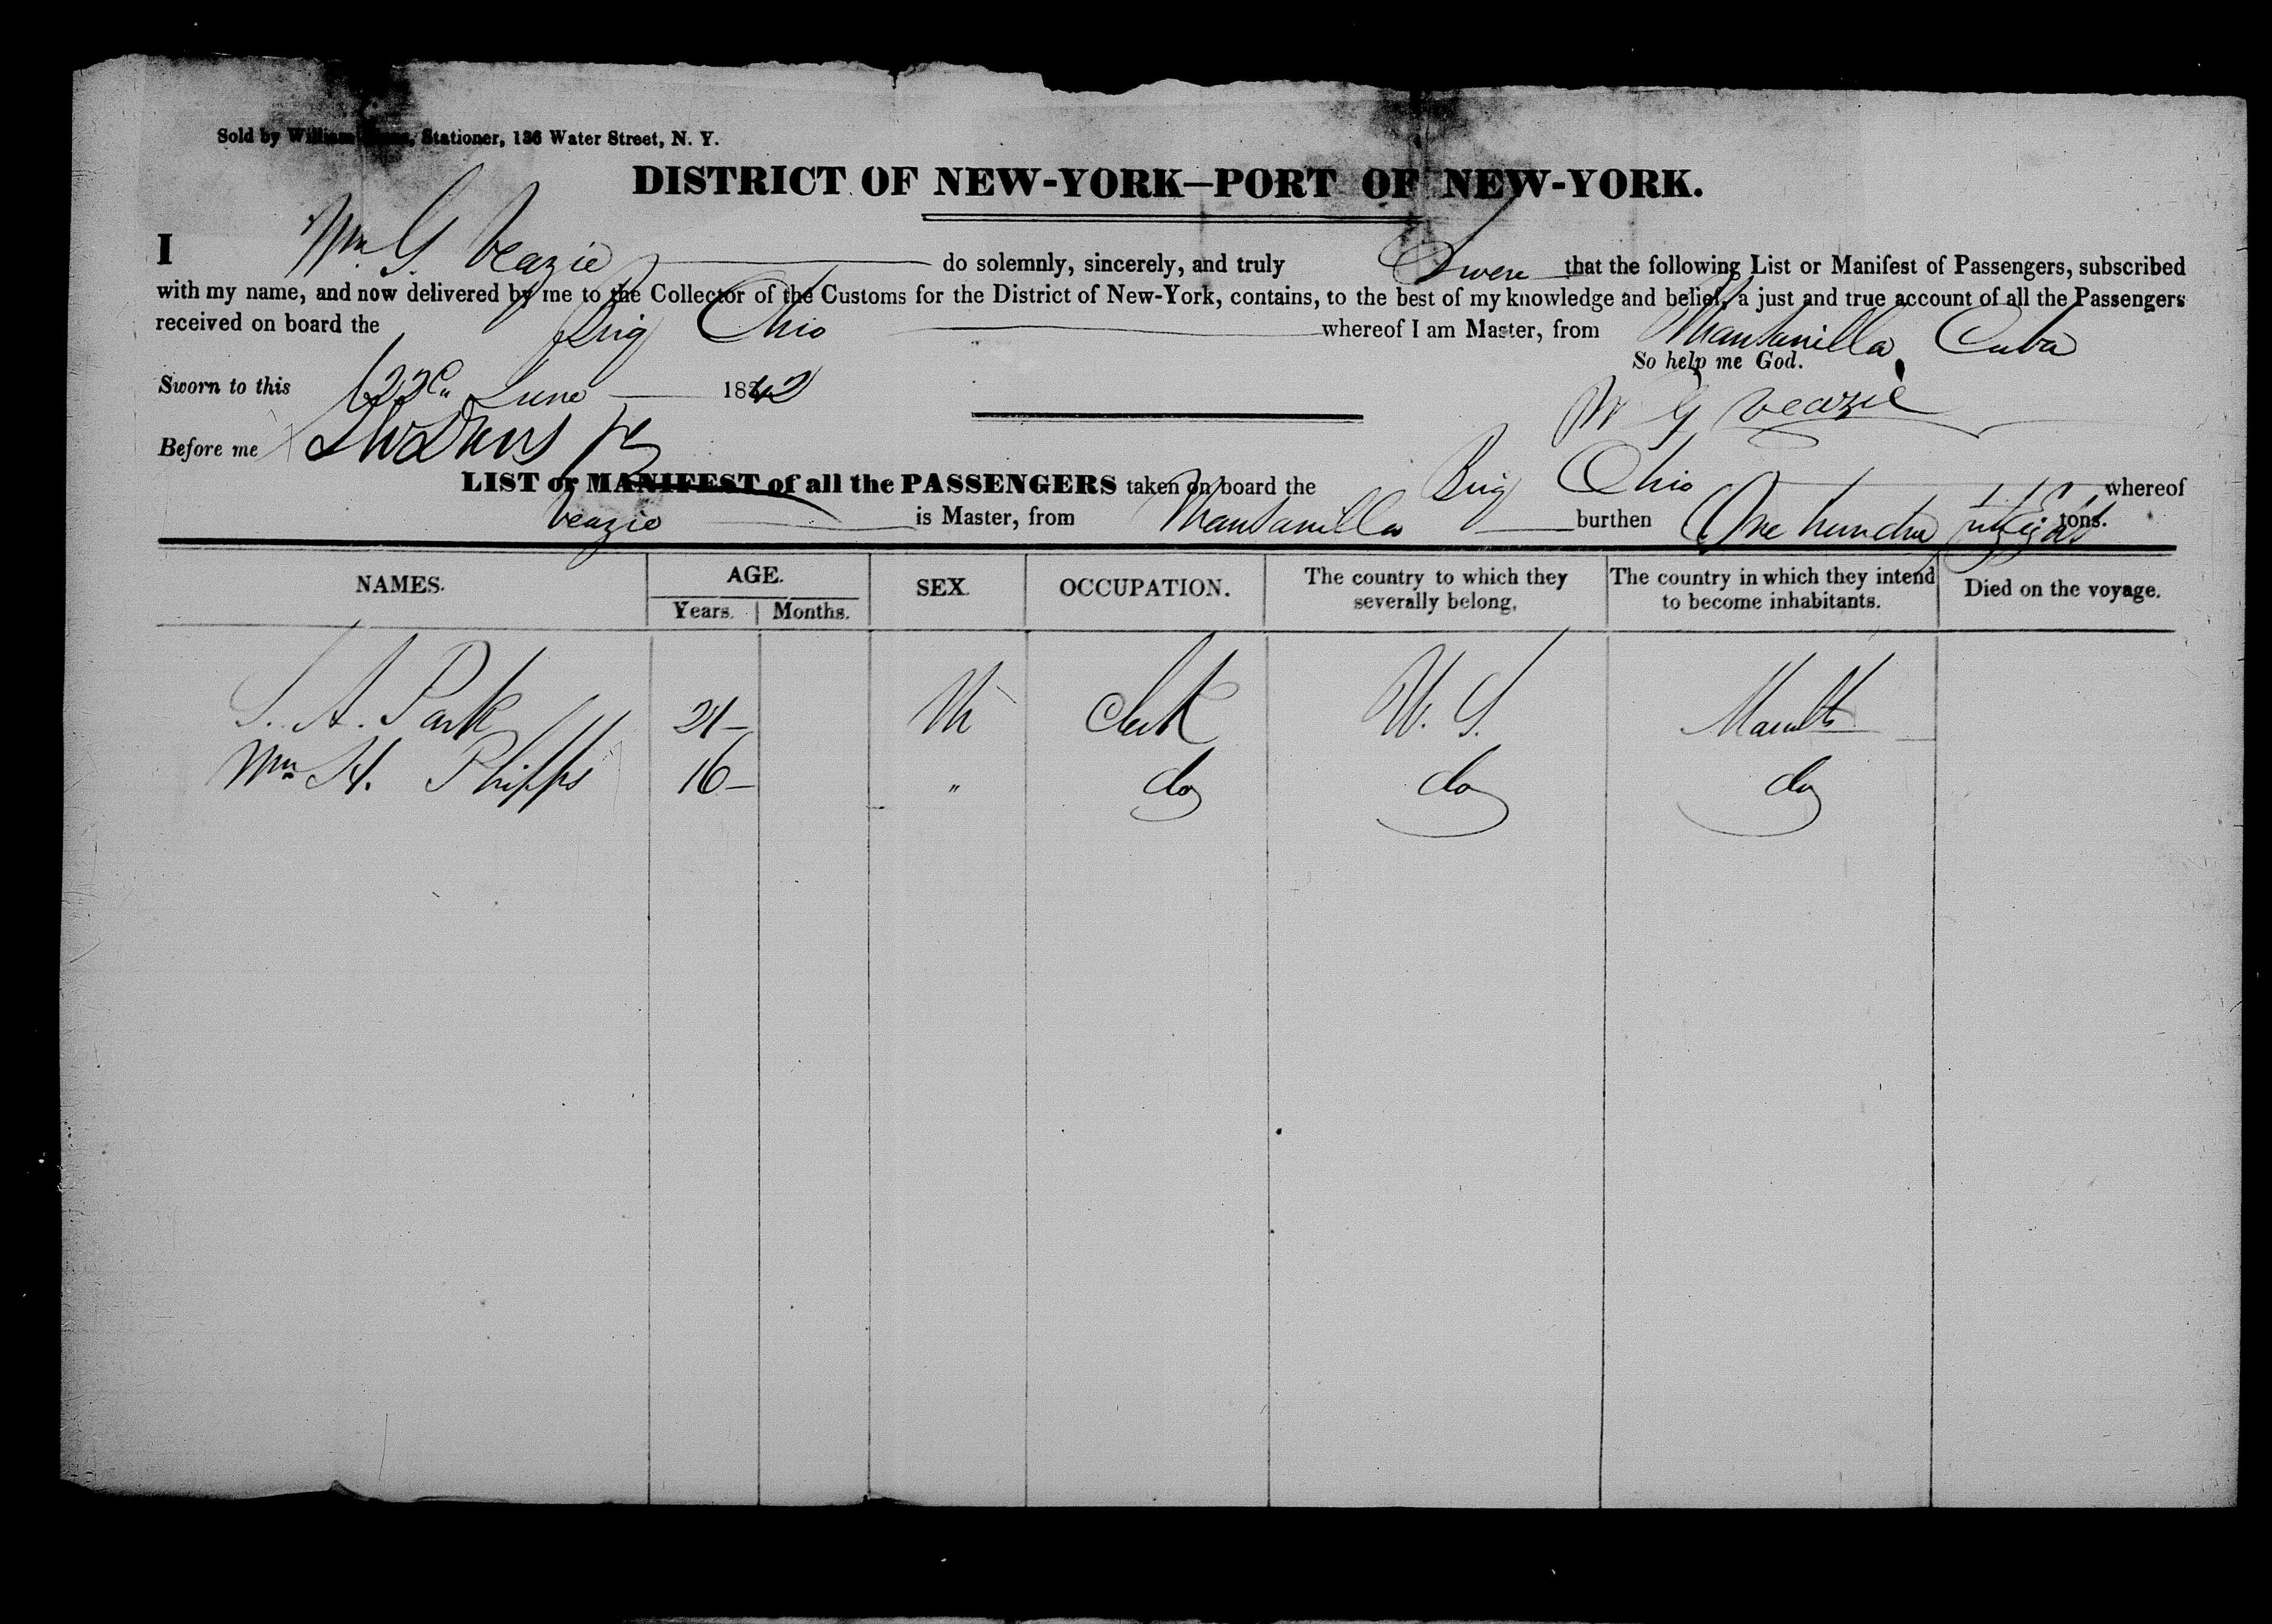 Sold by William , Stationer, 136 Water Street, N. Y.
DISTRICT OF NEW-YORK—PORT OF NEW-YORK.
I Wm G. Veazie do solemnly, sincerely, and truly Swere that the following List or Manifest of Passengers, subscribed
with my name, and now delivered by me to the Collector of the Customs for the District of New-York, contains, to the best of my knowledge and belief, a just and true account of all the Passengers
received on board the Brig Ohio whereof I am Master, from Mansanilla, Cuba
So help me God.
Sworn to this 22d June 1842
W G Veazie
Before me
LIST or MANIFEST of all the PASSENGERS taken on board the Brig Ohio whereof
Veazie is Master, from Mansanilla burthen One hundred tons.
NAMES. AGE. SEX. OCCUPATION. The country to which they severally belong, The country in which they intend to become inhabitants. Died on the voyage.
Years. Months.
S. A. Park 21 M Clerk U. S.
Wm H. Phipps 16 " do do do